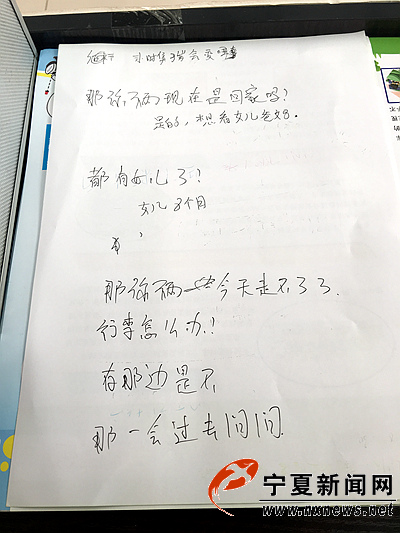 小时候 会
那你俩现在是回家吗?
是的,想看女儿爸妈。
都有女儿了?
女儿 8个月
那你俩 今天走不了了.
行李怎么办?
在那边是不
那一会过去问问.
宁夏新闻网
www.nxnews.net